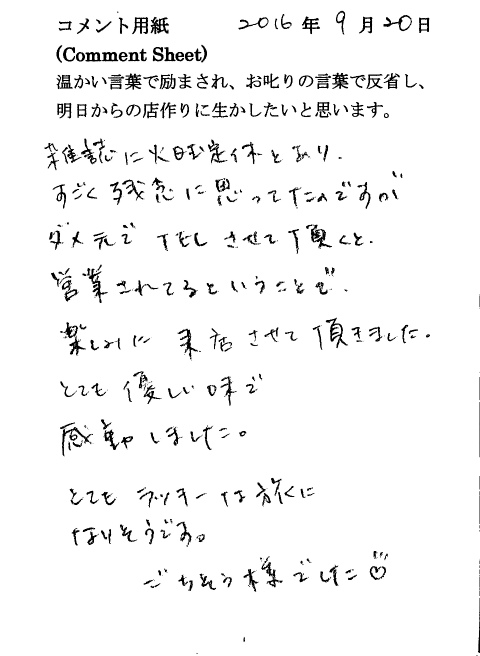 コメント用紙 2016年9月20日
(Comment Sheet)
温かい言葉で励まされ、お叱りの言葉で反省し、
明日からの店作りに生かしたいと思います。
雑誌に火曜定休とあり、
すごく残念に思ってたのですが
ダメ元でTELさせて頂くと、
営業されてるということで、
楽しみに来店させて頂きました。
とても優しい味で
感動しました。
とてもラッキーな旅に
なりそうです。
ごちそう様でした♡